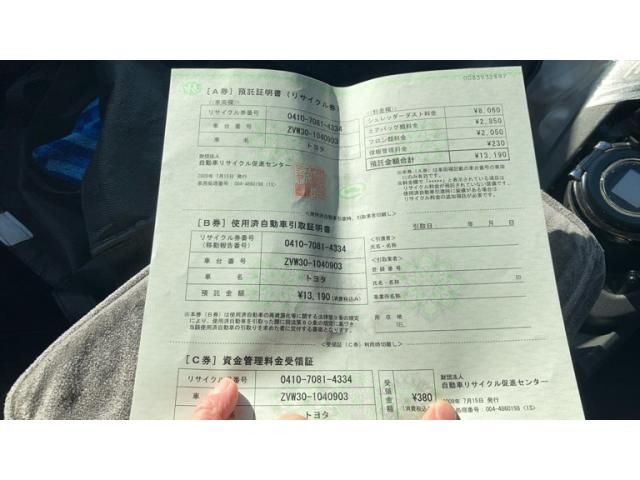 0083932897
[A券] 預託証明書 (リサイクル券)
リサイクル券番号 0410-7081-4334
車台番号 ZVW30-1040903
車名 トヨタ
財団法人
自動車リサイクル促進センター
2009年 7月15日 発行
シュレッダーダスト料金 ¥8,060
エアバッグ類料金 ¥2,850
フロン類料金 ¥2,050
情報管理料金 ¥230
預託金額合計 ¥13,190
[B券] 使用済自動車引取証明書
リサイクル券番号
(移動報告番号) 0410-7081-4334
車台番号 ZVW30-1040903
車名 トヨタ
預託金額 ¥13,190 (消費税込み)
引取日: 年 月 日
<引渡者>
氏名・名称
<引取業者>
登録番号
氏名・名称 印
事業所名称
所在地
TEL
<受領証(C券)利用時切離し>
[C券] 資金管理料金受領証
リサイクル券番号 0410-7081-4334
車 ZVW30-1040903
トヨタ
受領金額 ¥380
財団法人
自動車リサイクル促進センター
2009年 7月15日 発行